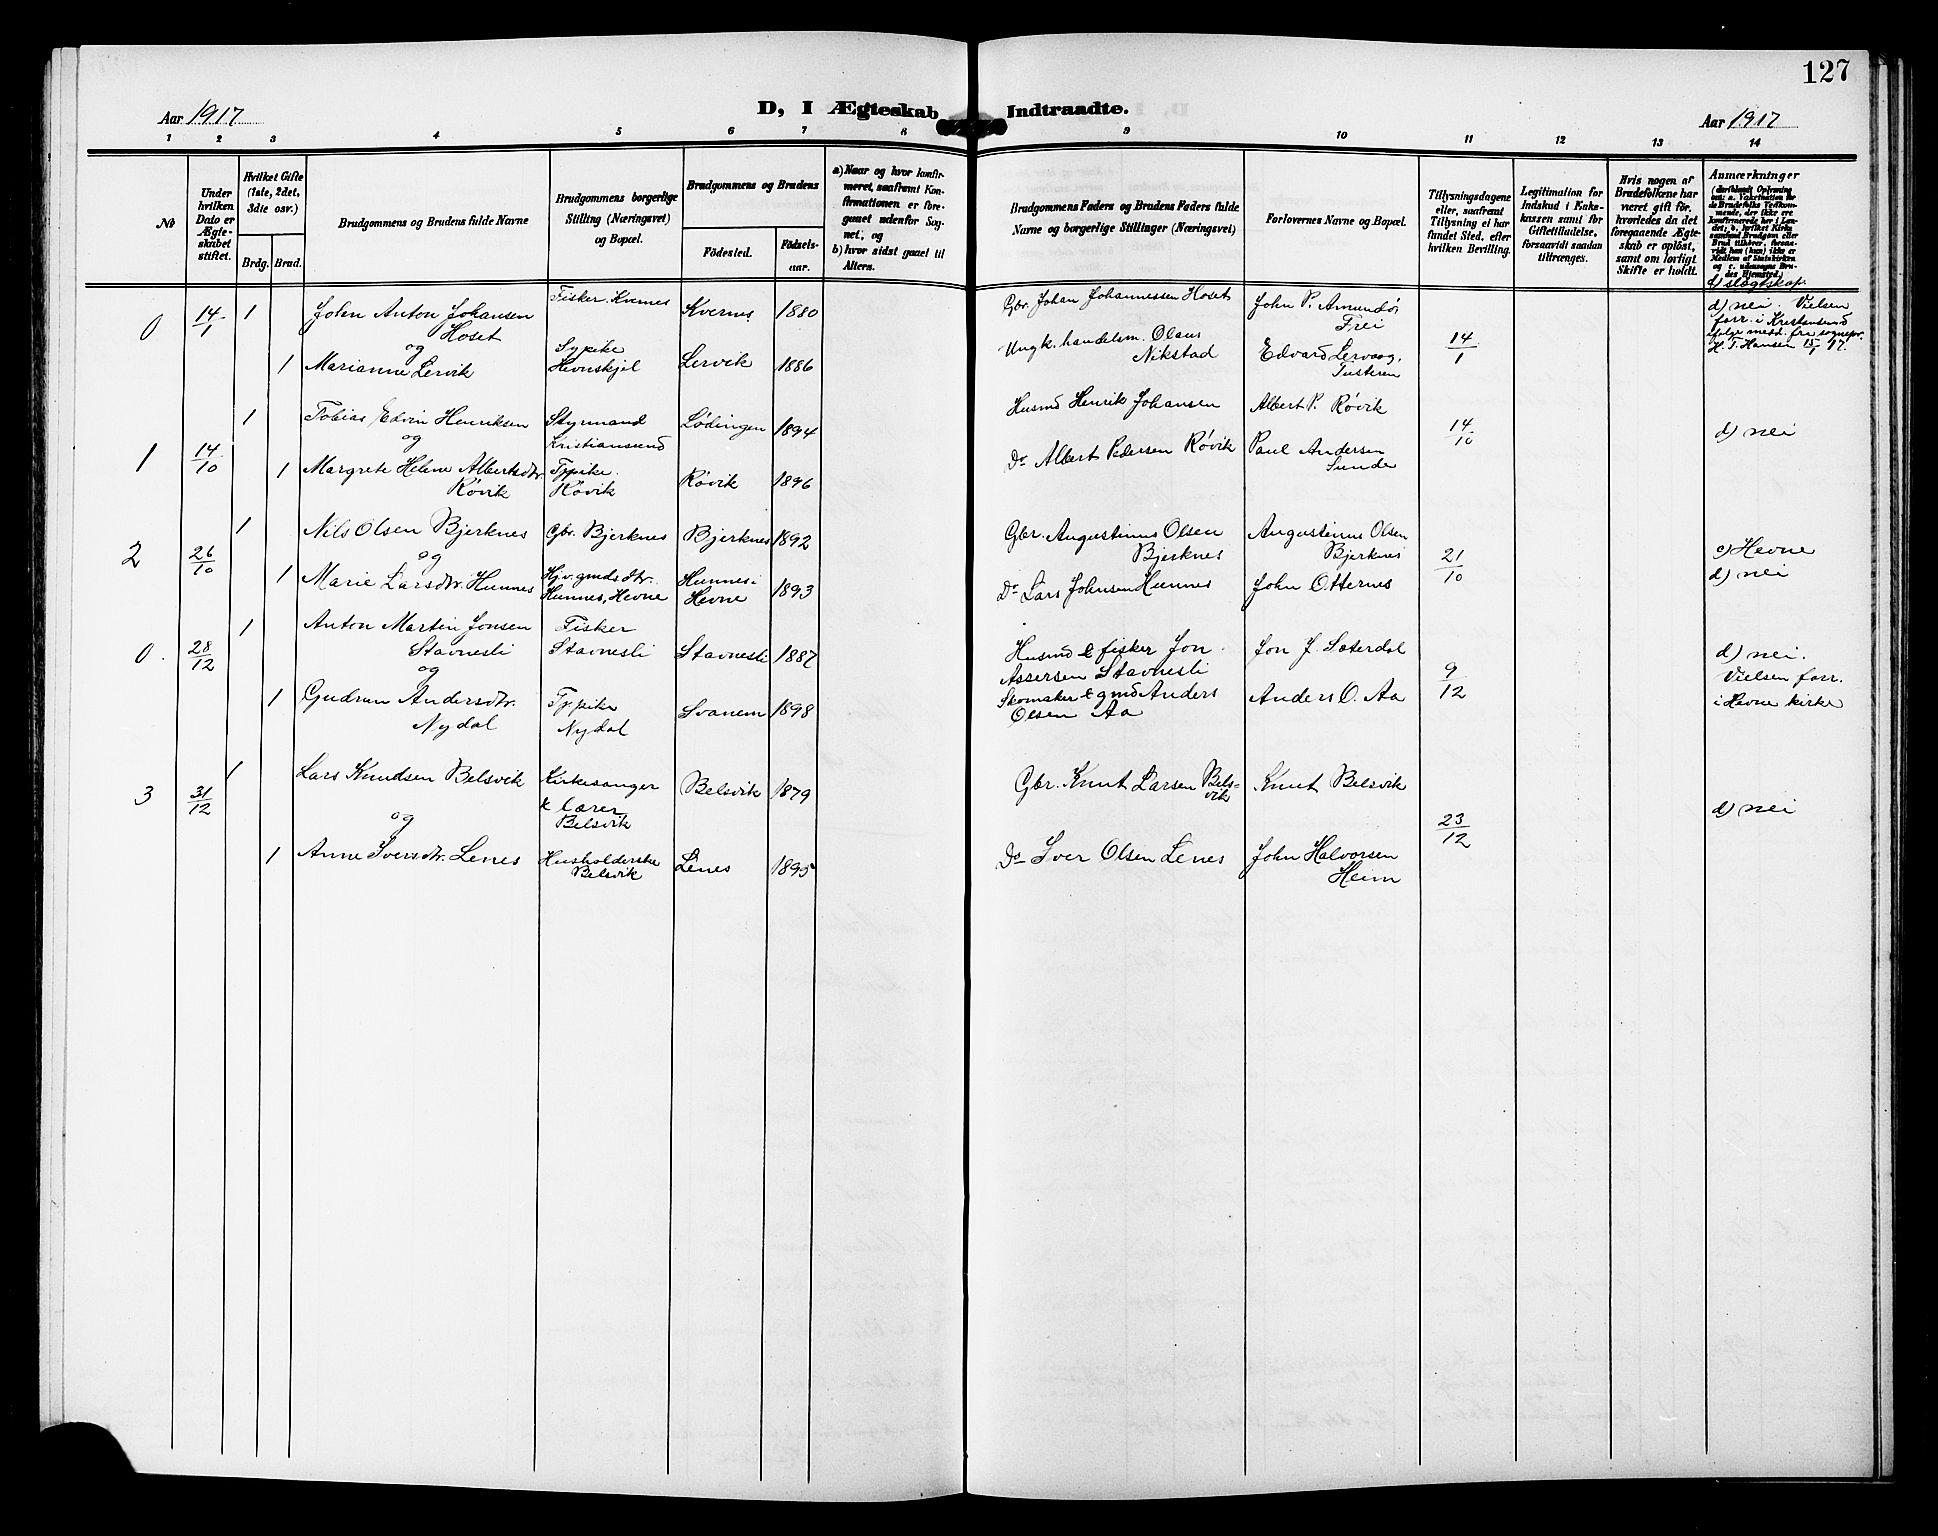 127
D, I Ægteskab Indtraadte.
Aar 1917
Aar 1917
1 2 3 4 5 6 7 8 9 10 11 12 13 14
No
Under hvilken Dato er Ægteskabet stiftet.
Hvilket Gifte (1ste, 2det, 3die osv.)
Brdg. Brud.
Brudgommens og Brudens fulde Navne
Brudgommens borgerlige Stilling (Næringsvei) og Bopæl.
Brudgommens og Brudens
Födested.
Födsels-aar.
a) Naar og hvor konfirmeret, saafremt Konfirmationen er foregaaet udenfor Sognet, og
b) hvor sidst gaaet til Alters.
Brudgommens Faders og Brudens Faders fulde Navne og borgerlige Stillinger (Næringsvei)
Forlovernes Navne og Bopæl.
Tillysningsdagene eller, saafremt Tillysning ei har fundet Sted, efter hvilken Bevilling.
Legitimation for Indskud i Enkekassen samt för Giftetilladelse, forsaavidt saadan tiltrænges.
Hvis nogen af Brudefolkene har været gift för, hvorledes da det foregaaende Ægteskab er oplöst, samt om lovligt Skifte er holdt.
Anmærkninger
d) slægtskap.
0 14/1 1 John Anton Johansen Hoset
Fisker. Kvernes Kvernes 1880
Gbr. Johan Johannessen Hoset
John P. Amundø, Frei
14/1
d) nei. Vielsen
forr. i Kristiansund
ifølge medd. fra sognepr.
H. T. Hansen 15/1 17.
og
1 Marianne Lervik
Sypike Hevnskjel Lervik 1886
Ungk. handelsm. Olaus Nikstad
Edvard Lervaag, Tusteren
1 14/10 1 Tobias Edvin Henriksen
Styrmand Kristiansund Lødingen 1894
Husmd Henrik Johansen
Albert P. Røvik
14/10
d) nei
og
1 Margrete Helene Albertsdtr. Røvik
Tjpike. Røvik Røvik 1896
Do Albert Pedersen Røvik
Paul Andersen Sunde
2 26/10 1 Nils Olsen Bjerknes
Gbr. Bjerknes Bjerknes 1892
Gbr. Augustinus Olsen Bjerknes
Augustinus Olsen Bjerknes
21/10
c) Hevne
d) nei
og
1 Marie Larsdtr. Hunnes
Hjv. gmdsdtr. Hunnes, Hevne Hunnes i Hevne 1893
Do Lars Johnsen Hunnes
John Otternes
0. 28/12 1 Anton Martin Jonsen Stavnesli
Fisker Stavnesli Stavnesli 1887
Husmd & fisker Jon Assersen Stavnesli
Jon J. Sæterdal
9/12
d) nei.
Vielsen forr.
i Hevne kirke
og
1 Gudrun Andersdtr. Nydal
Tjpike Nydal Svanem 1898
Skomaker & gmd Anders Olsen Aa
Anders O. Aa
3 31/12 1 Lars Knudsen Belsvik
Kirkesanger & lærer Belsvik Belsvik 1879
Gbr. Knut Larsen Belsvik
Knut Belsvik
23/12
d) nei
og
1 Anne Iversdtr. Lenes
Husholderske Belsvik Lenes 1895
Do Iver Olsen Lenes
John Halvorsen Heim